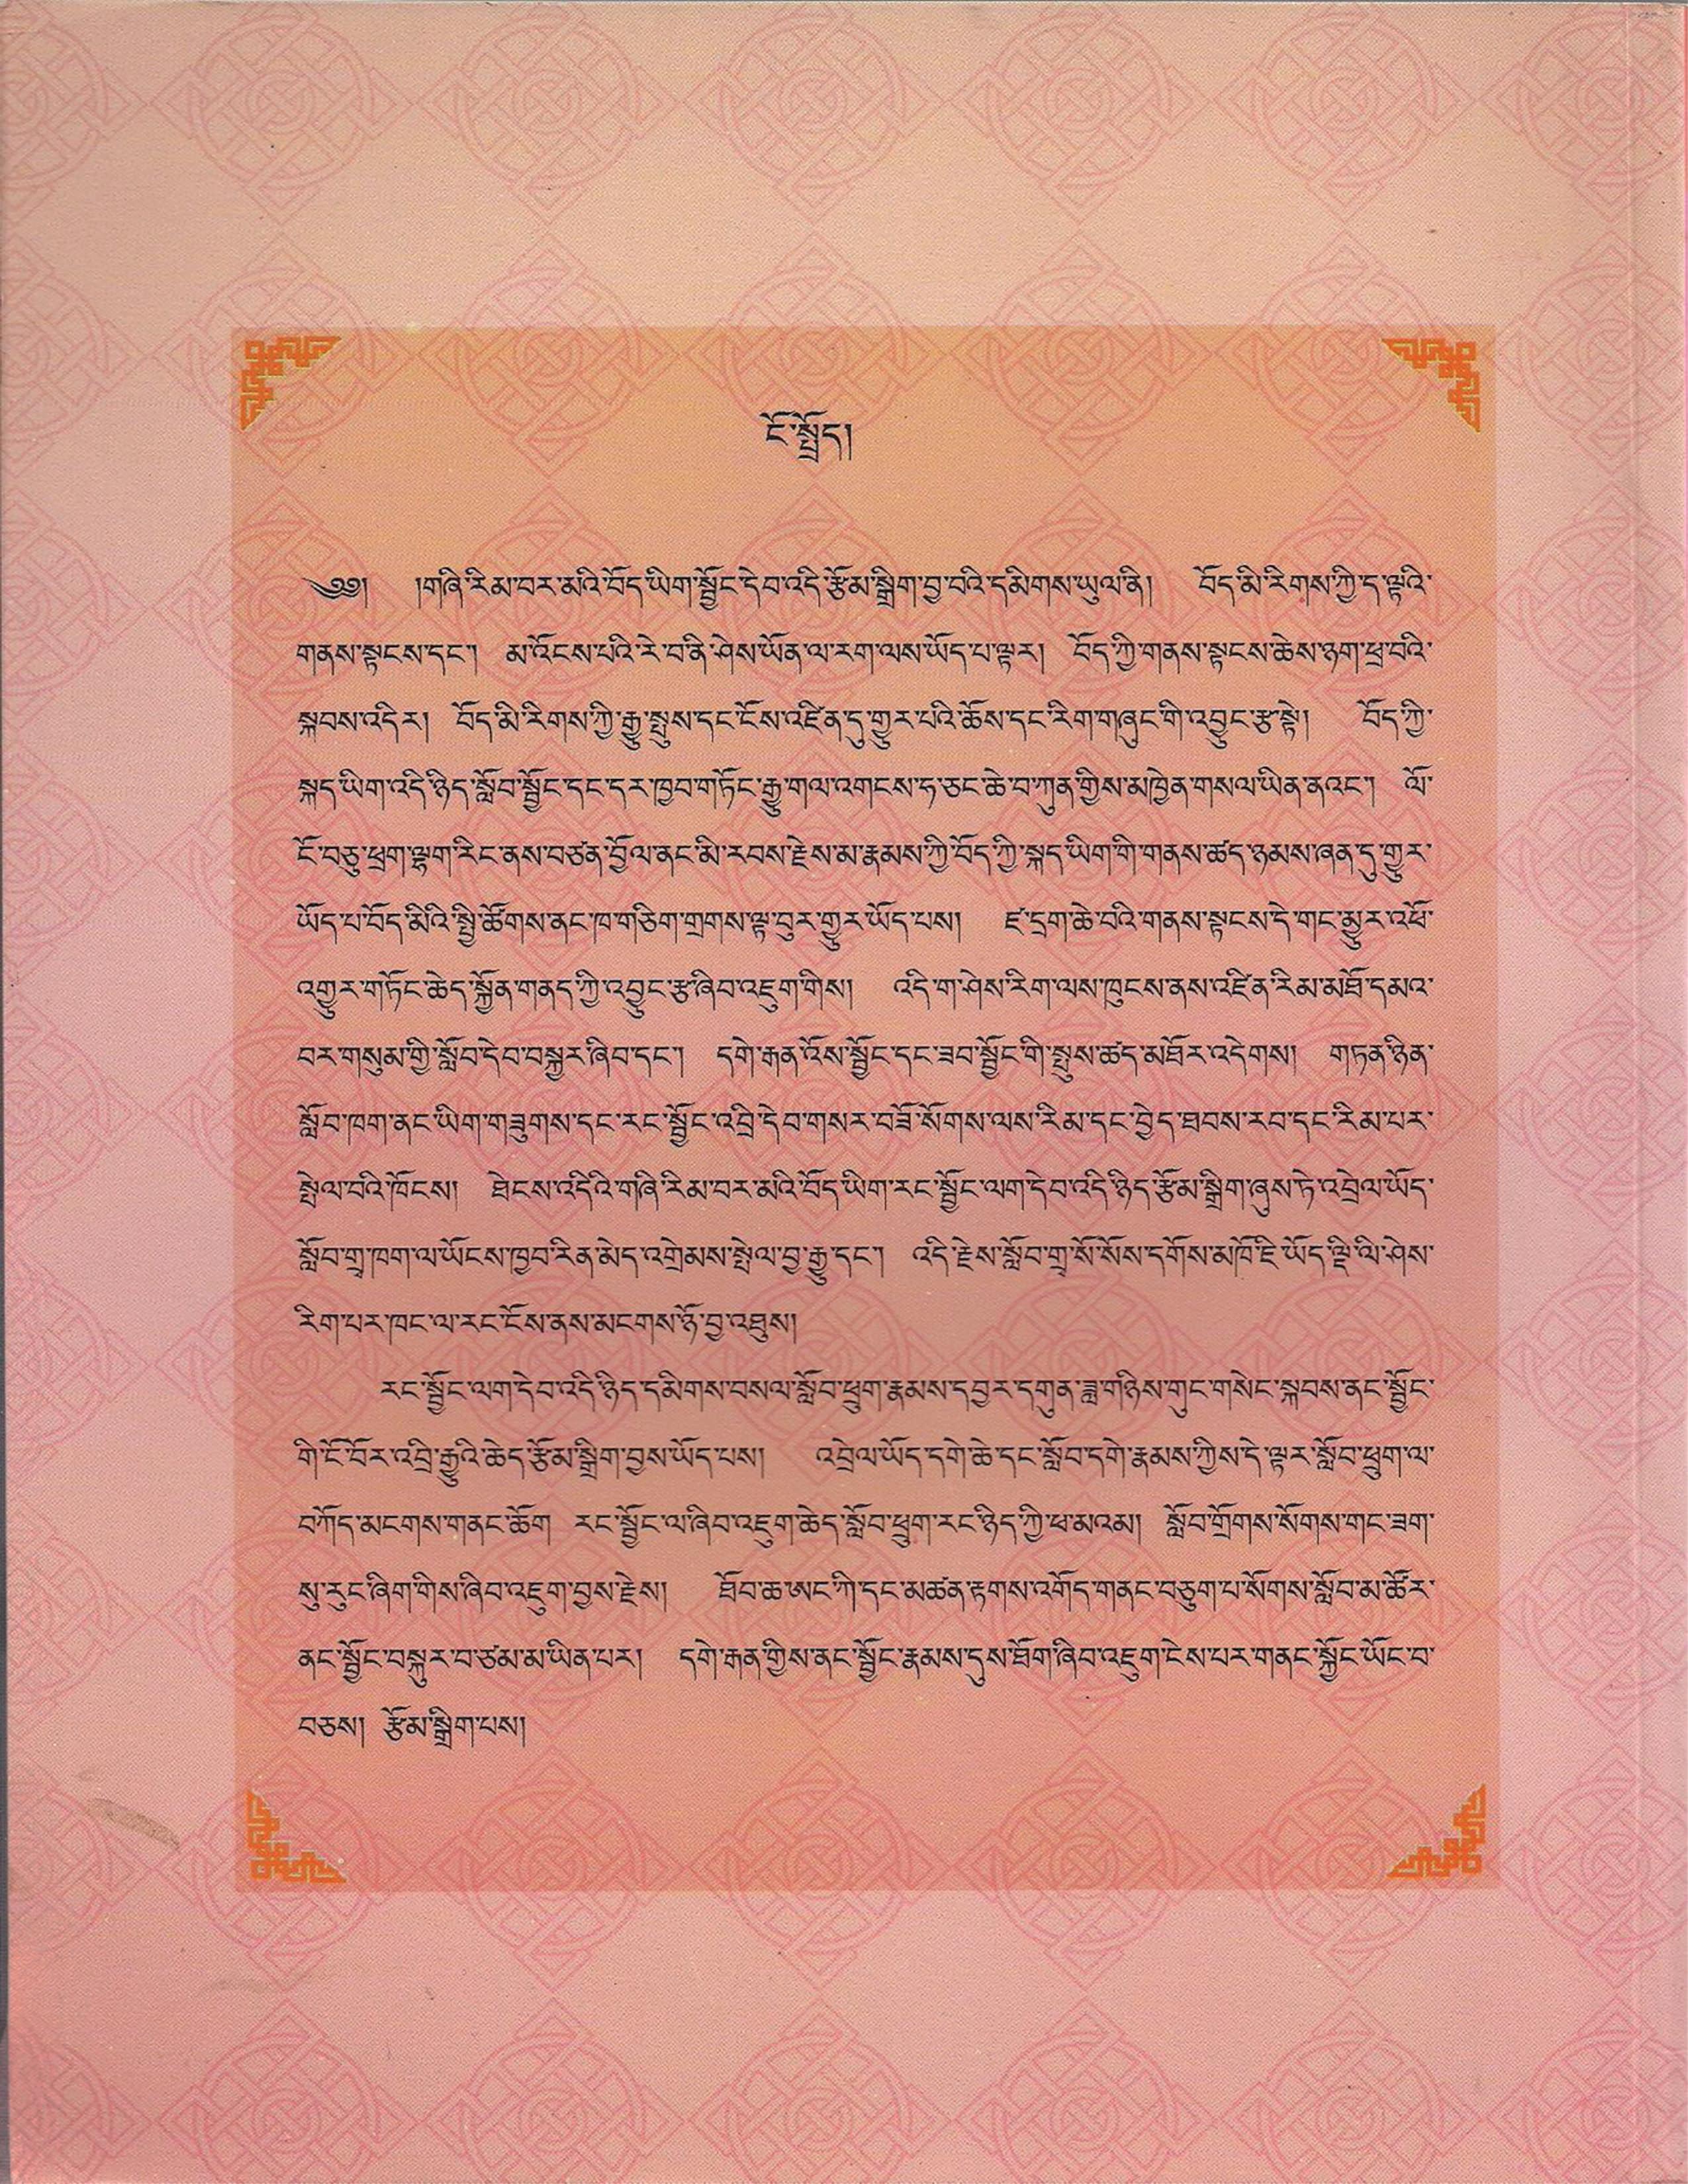 ངོ་སྤྲོད།
༄༅། །གཞི་རིམ་བར་མའི་བོད་ཡིག་སྦྱོང་དེབ་འདི་རྩོམ་སྒྲིག་བྱ་བའི་དམིགས་ཡུལ་ནི། བོད་མི་རིགས་ཀྱི་ད་ལྟའི་
གནས་སྟངས་དང་། མ་འོངས་པའི་རེ་བ་ནི་ཤེས་ཡོན་ལ་རག་ལས་ཡོད་པ་ལྟར། བོད་ཀྱི་གནས་སྟངས་ཆེས་ཉག་ཕྲ་བའི་
སྐབས་འདིར། བོད་མི་རིགས་ཀྱི་རྒྱུ་སྤུས་དང་ངོས་འཛིན་དུ་གྱུར་པའི་ཆོས་དང་རིག་གཞུང་གི་འབྱུང་རྩ་སྟེ། བོད་ཀྱི་
སྐད་ཡིག་འདི་ཉིད་སློབ་སྦྱོང་དང་དར་ཁྱབ་གཏོང་རྒྱུ་གལ་འགངས་ཧ་ཅང་ཆེ་བ་ཀུན་གྱིས་མཁྱེན་གསལ་ཡིན་ནའང་། ལོ་
ངོ་བཅུ་ཕྲག་ལྷག་རིང་ནས་བཙན་བྱོལ་ནང་མི་རབས་རྗེས་མ་རྣམས་ཀྱི་བོད་ཀྱི་སྐད་ཡིག་གི་གནས་ཚད་ཉམས་ཞན་དུ་གྱུར་
ཡོད་པ་བོད་མིའི་སྤྱི་ཚོགས་ནང་ཁ་གཅིག་གྲགས་ལྟ་བུར་གྱུར་ཡོད་པས། ཛ་དྲག་ཆེ་བའི་གནས་སྟངས་དེ་གང་མྱུར་འཕོ་
འགྱུར་གཏོང་ཆེད་སྐྱོན་གནད་ཀྱི་འབྱུང་རྩ་ཞིབ་འཇུག་གིས། འདི་ག་ཤེས་རིག་ལས་ཁུངས་ནས་འཛིན་རིམ་མཐོ་དམའ་
བར་གསུམ་གྱི་སློབ་དེབ་བསྐྱར་ཞིབ་དང་། དགེ་རྒན་འོས་སྦྱོང་དང་ཟབ་སྦྱོང་གི་སྤུས་ཚད་མཐོར་འདེགས། གཏན་ཉིན་
སློབ་ཁག་ནང་ཡིག་གཟུགས་དང་རང་སྦྱོང་འབྲི་དེབ་གསར་བཟོ་སོགས་ལས་རིམ་དང་བྱེད་ཐབས་རབ་དང་རིམ་པར་
སྤེལ་བའི་ཁོངས། ཐེངས་འདིའི་གཞི་རིམ་བར་མའི་བོད་ཡིག་རང་སྦྱོང་ལག་དེབ་འདི་ཉིད་རྩོམ་སྒྲིག་ཞུས་ཏེ་འབྲེལ་ཡོད་
སློབ་གྲྭ་ཁག་ལ་ཡོངས་ཁྱབ་རིན་མེད་འགྲེམས་སྤེལ་བྱ་རྒྱུ་དང་། འདི་རྗེས་སློབ་གྲྭ་སོ་སོས་དགོས་མཁོ་ཇི་ཡོད་ལྡི་ལི་ཤེས་
རིག་པར་ཁང་ལ་རང་ངོས་ནས་མངགས་ཉོ་བྱ་འཐུས།
རང་སྦྱོང་ལག་དེབ་འདི་ཉིད་དམིགས་བསལ་སློབ་ཕྲུག་རྣམས་དབྱར་དགུན་ཟླ་གཉིས་གུང་གསེང་སྐབས་ནང་སྦྱོང་
གི་ངོ་བོར་འབྲི་རྒྱུའི་ཆེད་རྩོམ་སྒྲིག་བྱས་ཡོད་པས། འབྲེལ་ཡོད་དགེ་ཆེ་དང་སློབ་དགེ་རྣམས་ཀྱིས་དེ་ལྟར་སློབ་ཕྲུག་ལ་
བཀོད་མངགས་གནང་ཆོག རང་སྦྱོང་ལ་ཞིབ་འཇུག་ཆེད་སློབ་ཕྲུག་རང་ཉིད་ཀྱི་ཕ་མའམ། སློབ་གྲོགས་སོགས་གང་ཟག་
སུ་རུང་ཞིག་གིས་ཞིབ་འཇུག་བྱས་རྗེས། ཐོབ་ཆ་ཨང་ཀི་དང་མཚན་རྟགས་འགོད་གནང་བཅུག་པ་སོགས་སློབ་མ་ཚོར་
ནང་སྦྱོང་བསྐུར་བ་ཙམ་མ་ཡིན་པར། དགེ་རྒན་གྱིས་ནང་སྦྱོང་རྣམས་དུས་ཐོག་ཞིབ་འཇུག་ངེས་པར་གནང་སྐྱོང་ཡོང་བ་
བཅས། རྩོམ་སྒྲིག་པས།